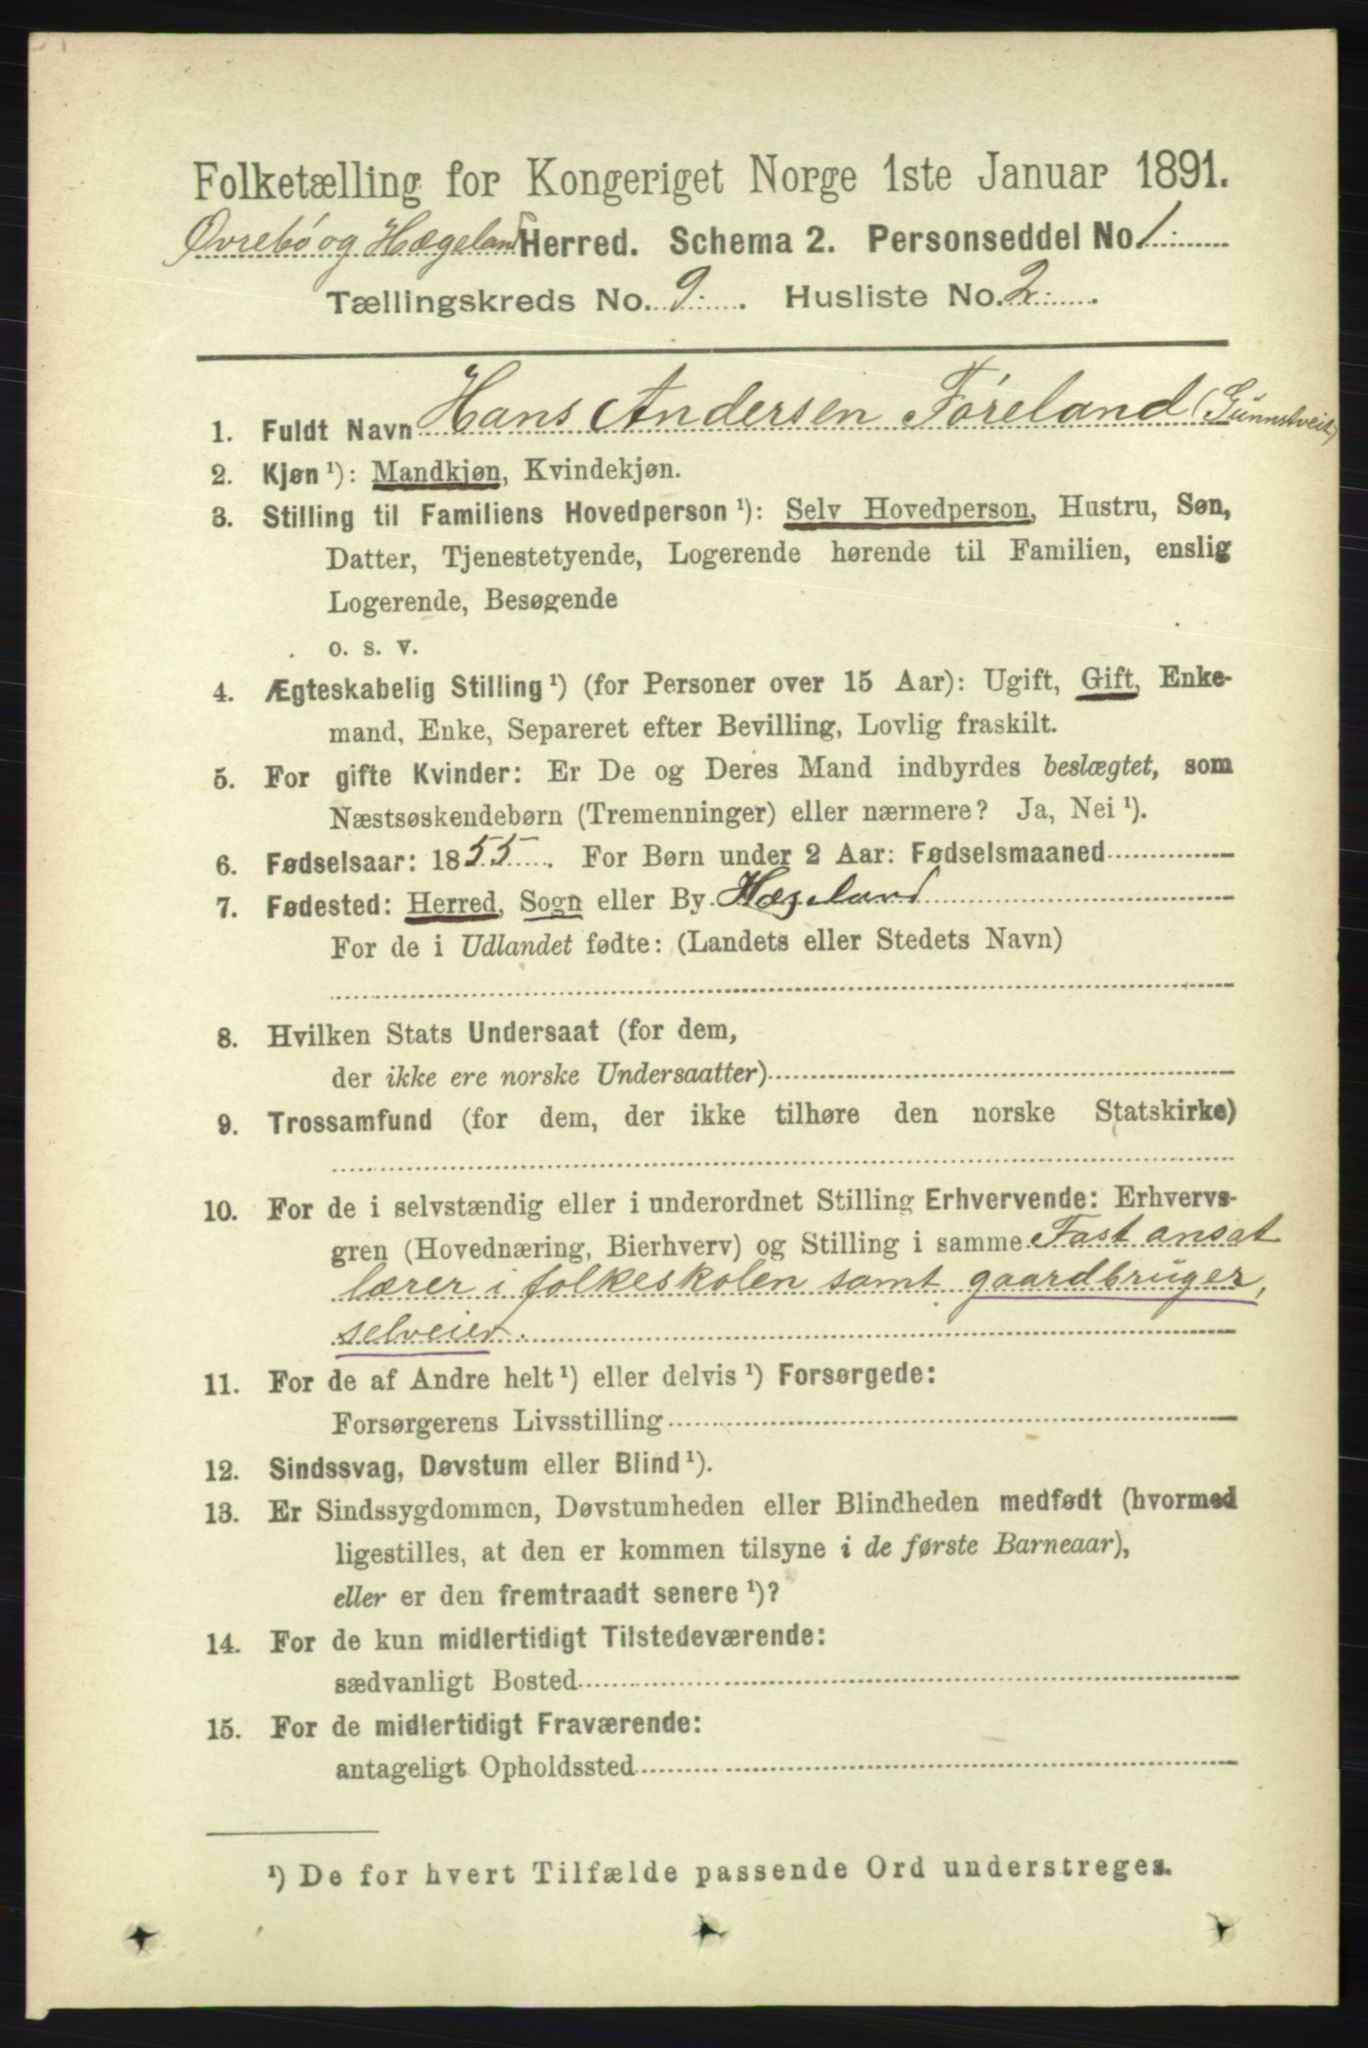 Folketælling for Kongeriget Norge 1ste Januar 1891.
Øvrebø og Hægeland Herred. Schema 2. Personseddel No. 1.
Tællingskreds No. 9. Husliste No. 2.
1. Fuldt Navn Hans Andersen Føreland (Gunnstveit)
2. Kjøn ¹): Mandkjøn, Kvindekjøn.
3. Stilling til Familiens Hovedperson ¹): Selv Hovedperson, Hustru, Søn,
Datter, Tjenestetyende, Logerende hørende til Familien, enslig
Logerende, Besøgende
o. s. v.
4. Ægteskabelig Stilling ¹) (for Personer over 15 Aar): Ugift, Gift, Enke-
mand, Enke, Separeret efter Bevilling, Lovlig fraskilt.
5. For gifte Kvinder: Er De og Deres Mand indbyrdes beslægtet, som
Næstsøskendebørn (Tremenninger) eller nærmere? Ja, Nei ¹).
6. Fødselsaar: 1855. For Børn under 2 Aar: Fødselsmaaned
7. Fødested: Herred, Sogn eller By Hægeland
For de i Udlandet fødte: (Landets eller Stedets Navn)
8. Hvilken Stats Undersaat (for dem,
der ikke ere norske Undersaatter)
9. Trossamfund (for dem, der ikke tilhøre den norske Statskirke)
10. For de i selvstændig eller i underordnet Stilling Erhvervende: Erhvervs-
gren (Hovednæring, Bierhverv) og Stilling i samme Fast ansat
lærer i folkeskolen samt gaardbruger,
selveier.
11. For de af Andre helt ¹) eller delvis ¹) Forsørgede:
Forsørgerens Livsstilling
12. Sindssvag, Døvstum eller Blind ¹).
13. Er Sindssygdommen, Døvstumheden eller Blindheden medfødt (hvormed
ligestilles, at den er kommen tilsyne i de første Barneaar),
eller er den fremtraadt senere ¹)?
14. For de kun midlertidigt Tilstedeværende:
sædvanligt Bosted
15. For de midlertidigt Fraværende:
antageligt Opholdssted
¹) De for hvert Tilfælde passende Ord understreges.